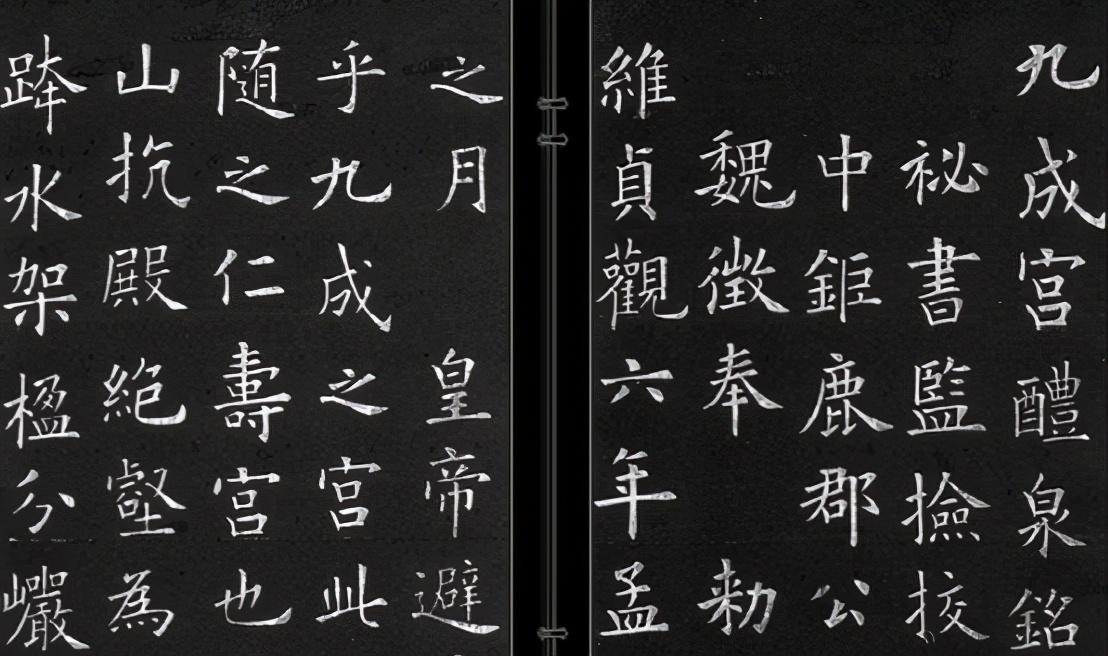 九成宮醴泉銘
祕書監撿挍
中鉅鹿郡公
魏徵奉 勑
維貞觀六年孟
之月 皇帝避
乎九成之宮此
随之仁壽宮也
山抗殿絕壑為
跨水架楹分巖